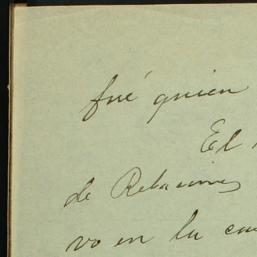 fué quien
El
de Relaciones
vo en la